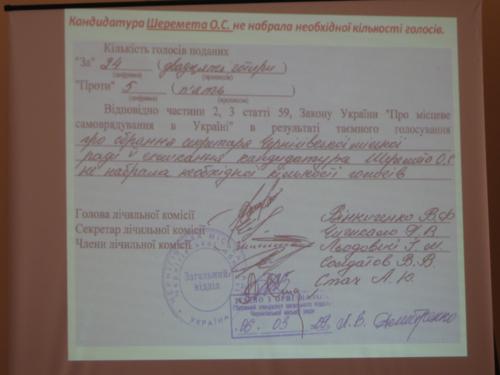 Кандидатура Шеремета О.С. не набрала необхідної кількості голосів.
Кількість голосів поданих
"За" 24 ( двадцять чотири )
(цифрами) (прописом)
"Проти" 5 ( п'ять )
(цифрами) (прописом)
Відповідно частини 2, 3 статті 59, Закону України "Про місцеве
самоврядування в Україні" в результаті таємного голосування
про обрання секретаря Чернігівської міської
ради скликання кандидатура Шеремета О.С
не набрала необхідної кількості голосів
Голова лічильної комісії В.Ф
Секретар лічильної комісії
Члени лічильної комісії І.М.
Солдатов В.В
Стах А.Ю.
Загальний
відділ
УКРАЇНА
З ОРИГІНАЛОМ
Чернігівської міської ради
03 Л.В.